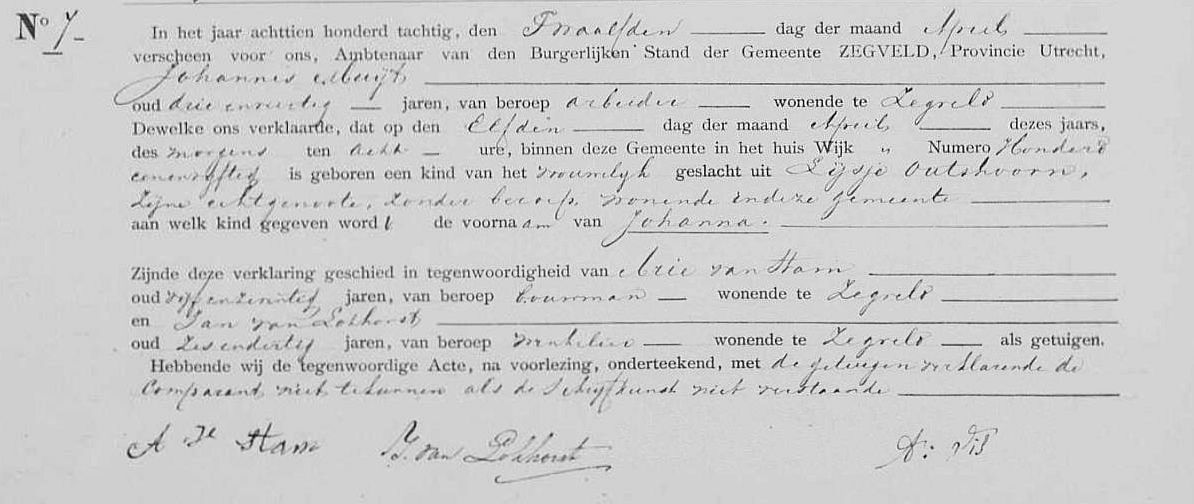 No 7.
In het jaar achttien honderd tachtig, den Twaalfden dag der maand April
verscheen voor ons, Ambtenaar van den Burgerlijken Stand der Gemeente ZEGVELD, Provincie Utrecht,
Johannes Muijt
oud drie enveertig jaren, van beroep arbeider wonende te Zegveld
Dewelke ons verklaarde, dat op den Elfden dag der maand April dezes jaars,
des morgens ten acht ure, binnen deze Gemeente in het huis Wijk „ Numero Honderd
eenenvijftig is geboren een kind van het vrouwelijk geslacht uit Lijsje Outshoorn,
Zijne echtgenoote, zonder beroep, wonende indeze gemeente
aan welk kind gegeven word t de voorna am van Johanna.
Zijnde deze verklaring geschied in tegenwoordigheid van Arie van Stam
oud jaren, van beroep bouwman wonende te Zegveld
en Jan van Lokhorst
oud Zesendertig jaren, van beroep winkelier wonende te Zegveld als getuigen.
Hebbende wij de tegenwoordige Acte, na voorlezing, onderteekend, met de getuigen verklarende de
Comparant niet tekunnen als de Schrijfkunst niet verstaande
A Stam J. van Lokhorst A: Vis